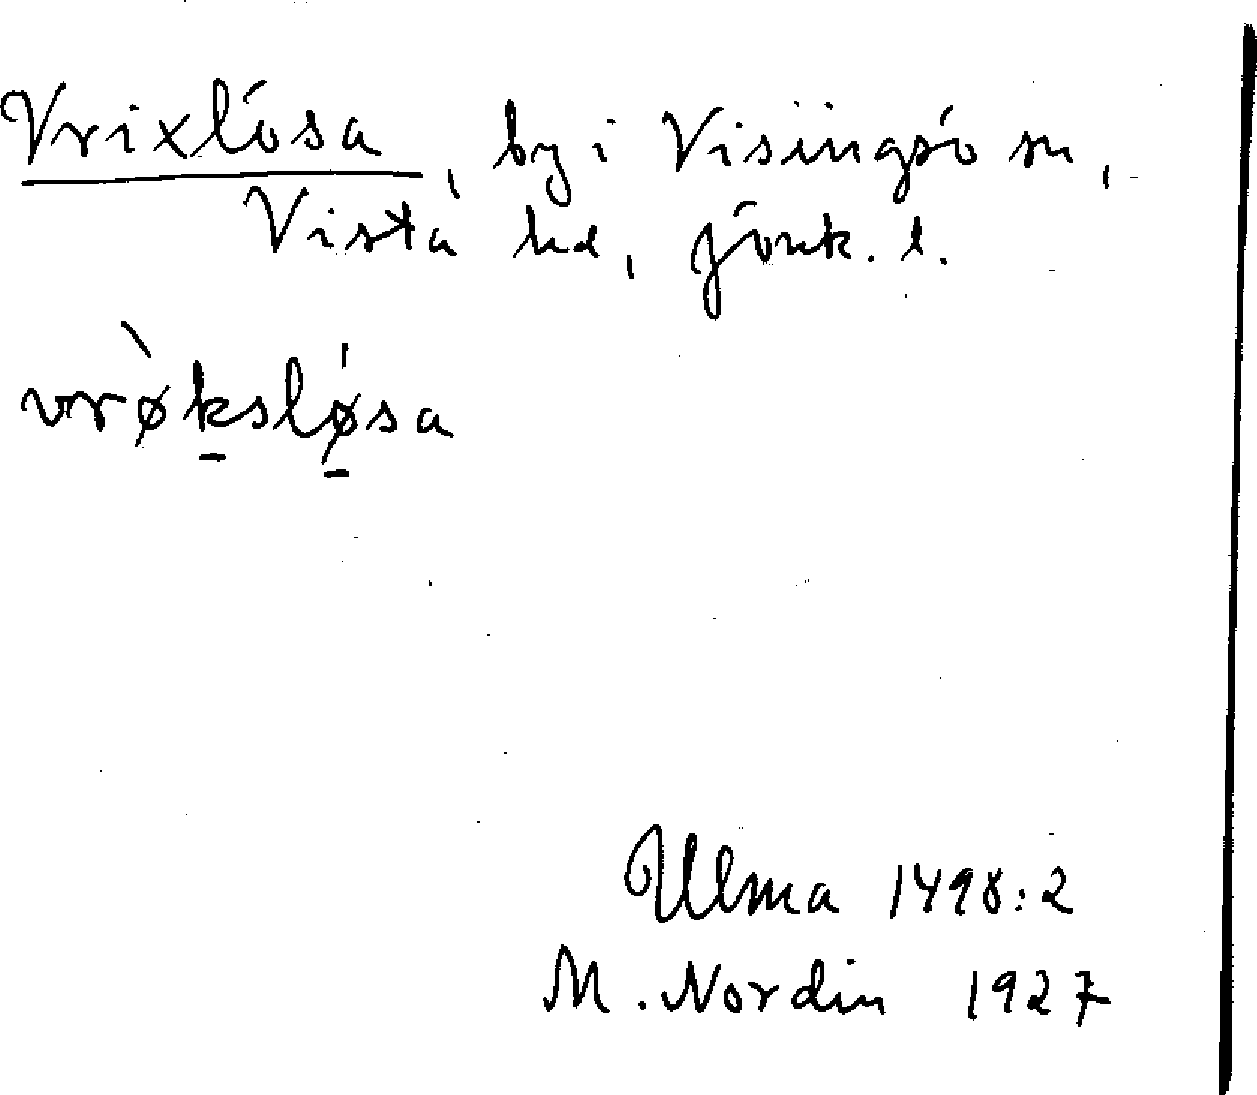 Vrixlösa, by i Visingsö sn,
Vista hd, Jönk. l.
vrø̀kslǿsa
Ulma 1498:2
M. Nordin 1927